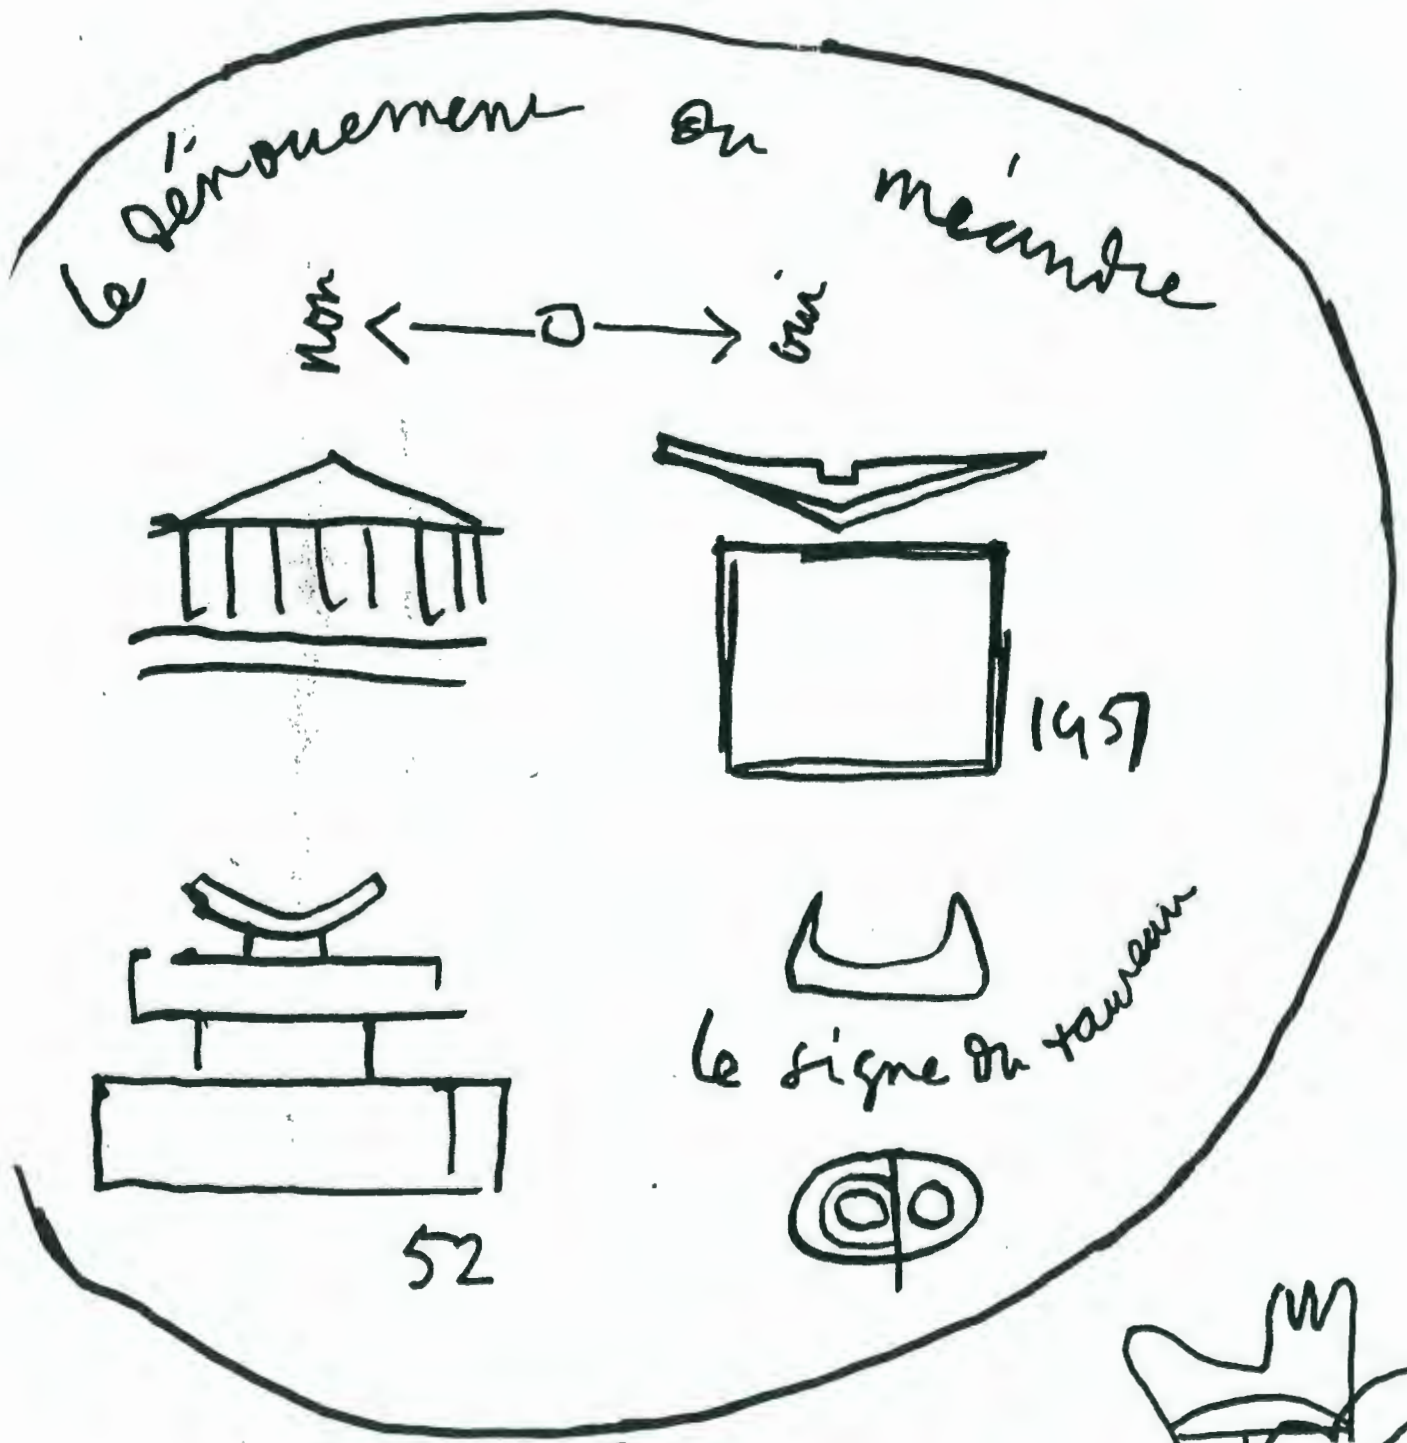 le dénouement du méandre
non
oui
1951
52
le signe du taureau